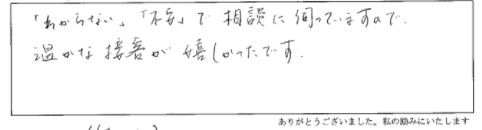 「わからない」、「不安」で相談に伺っていますので、
温かな接客が嬉しかったです。
ありがとうございました。私の励みにいたします